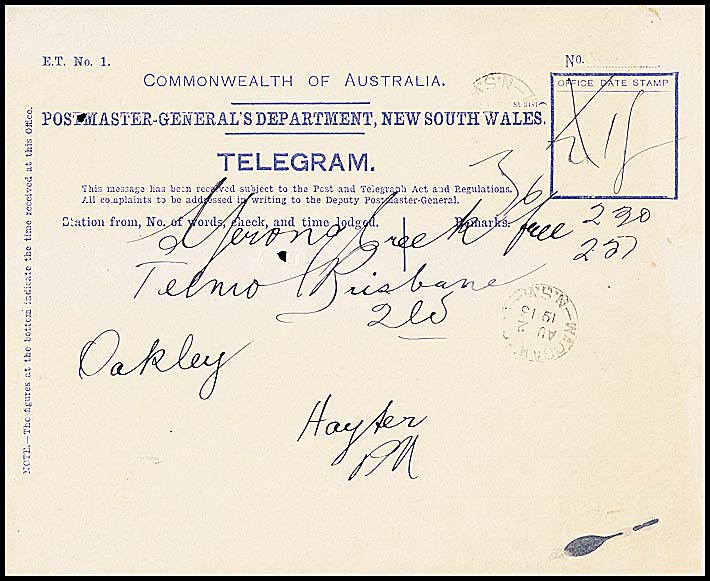 E.T. No. 1.
No.
COMMONWEALTH OF AUSTRALIA.
OFFICE DATE STAMP
POSTMASTER-GENERAL'S DEPARTMENT, NEW SOUTH WALES.
TELEGRAM.
This message has been received subject to the Post and Telegraph Act and Regulations.
All complaints to be addressed in writing to the Deputy Postmaster-General.
Station from, No. of words, check, and time lodged.
Remarks.
Yerong Creek free 230
257
Telmo Brisbane
Oakley
Hayter
PM
N.S.W
AU 2
19 13
NOTE.—The figures at the bottom indicate the time received at this Office.